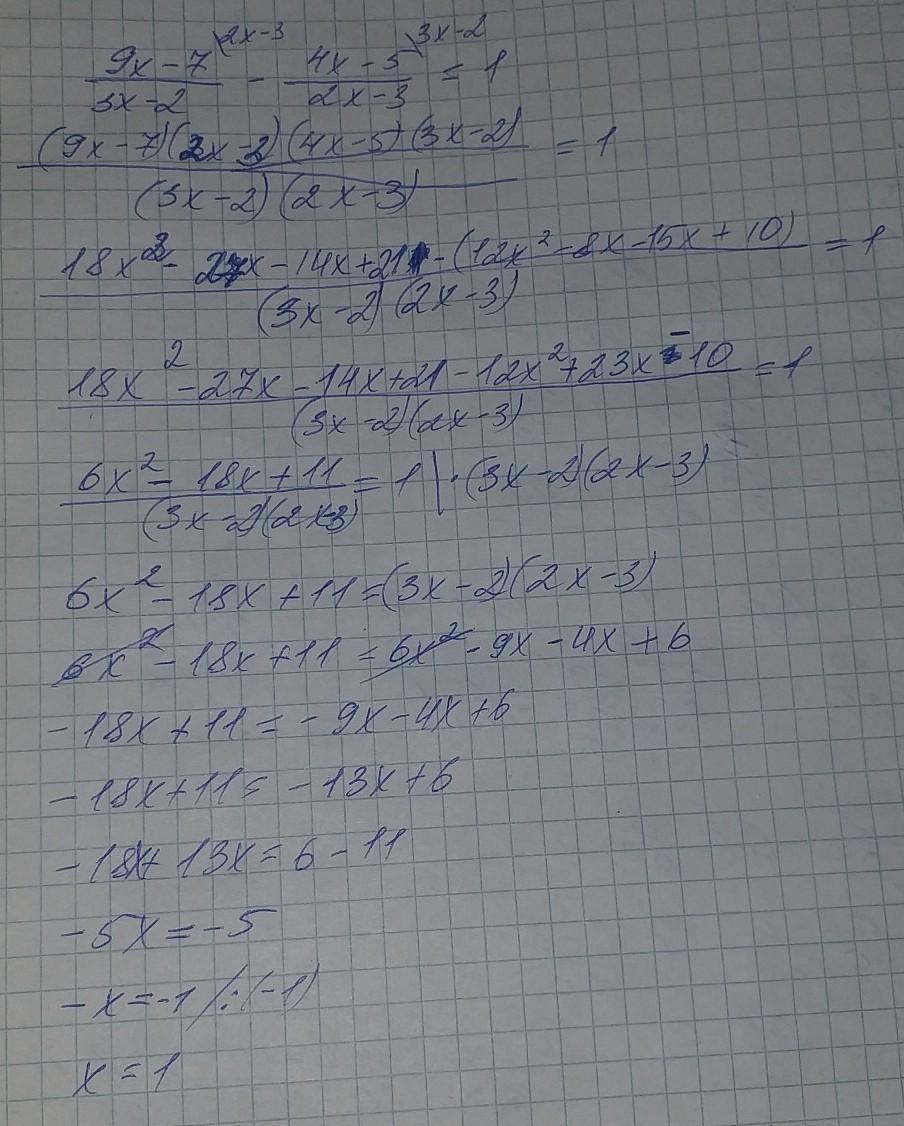 (9x-7)/(3x-2) \2x-3 - (4x-5)/(2x-3) \3x-2 = 1
(9x-7)(2x-3)(4x-5)(3x-2)/(3x-2)(2x-3) = 1
18x² - 27x - 14x + 21 - (12x² - 8x - 15x + 10)/(3x-2)(2x-3) = 1
18x² - 27x - 14x + 21 - 12x² + 23x - 10/(3x-2)(2x-3) = 1
6x² - 18x + 11/(3x-2)(2x-3) = 1 | · (3x-2)(2x-3)
6x² - 18x + 11 = (3x-2)(2x-3)
6x² - 18x + 11 = 6x² - 9x - 4x + 6
-18x + 11 = -9x - 4x + 6
-18x + 11 = -13x + 6
-18x + 13x = 6 - 11
-5x = -5
-x = -1 /:(-1)
x = 1